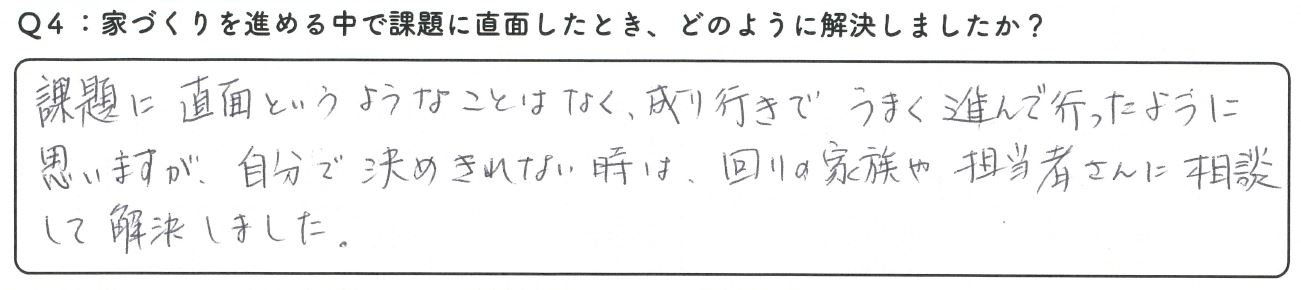 Q4：家づくりを進める中で課題に直面したとき、どのように解決しましたか？
課題に直面というようなことはなく、成り行きでうまく進んで行ったように
思いますが、自分で決めきれない時は、回りの家族や担当者さんに相談
して解決しました。